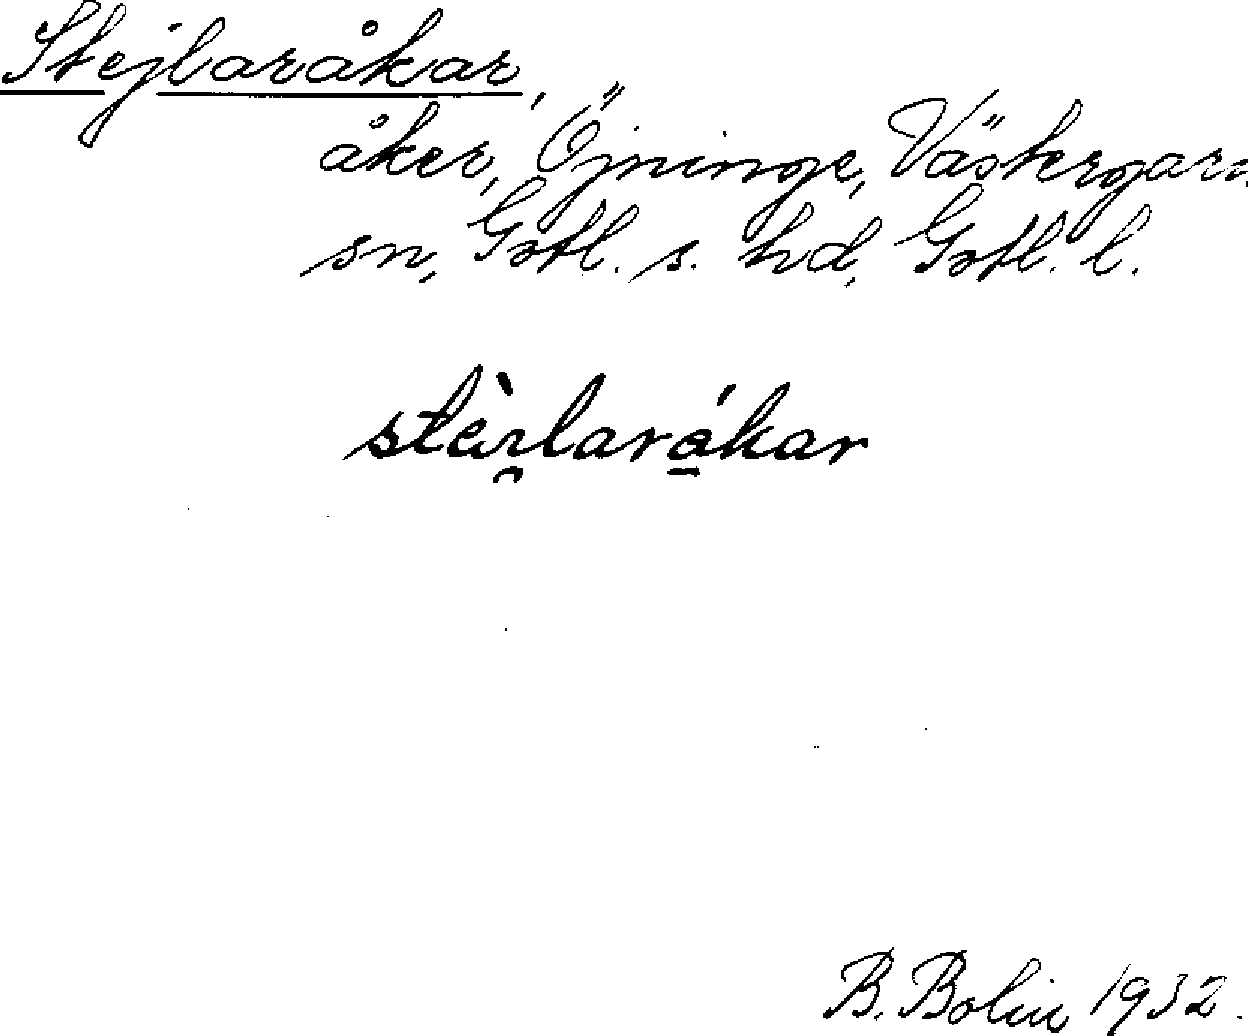 Stejlaråkar,
åker, Öjninge, Västergarn
sn, Gotl. s. hd, Gotl. l.
B. Bolin 1932.